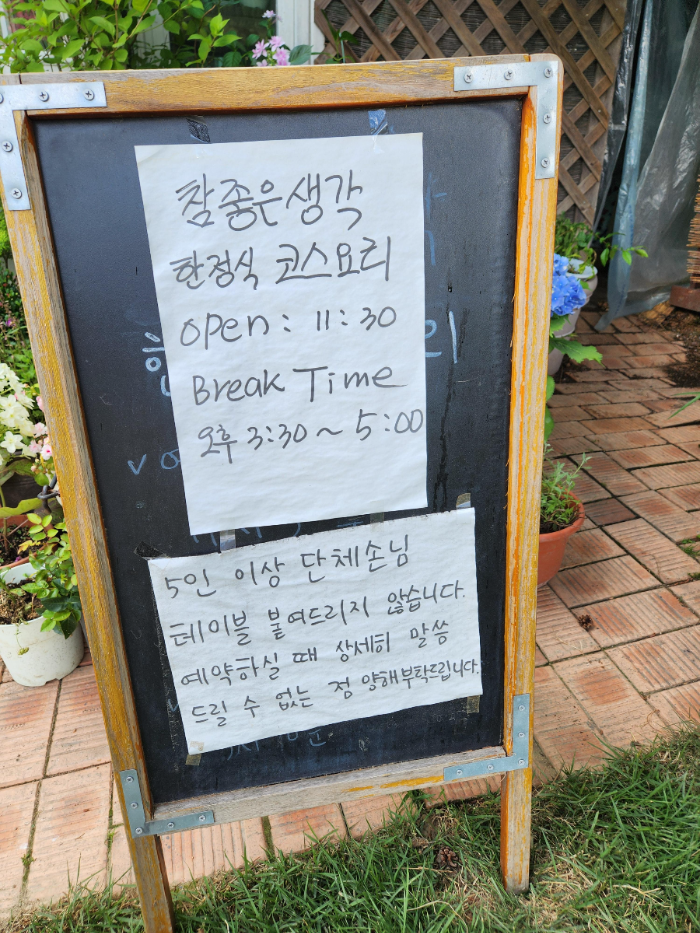 참좋은생각
한정식 코스요리
open : 11 : 30
Break Time
오후 3:30 ~ 5:00
5인 이상 단체손님
테이블 붙여드리지 않습니다.
예약하실 때 상세히 말씀
드릴 수 없는 점 양해부탁드립니다.